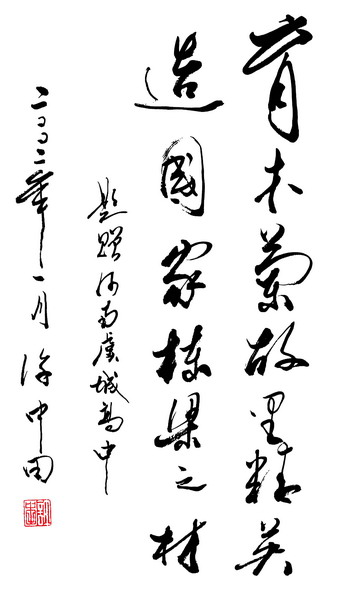 育木蘭故里精英
造國家棟梁之材
題贈河南虞城高中
二〇〇二年一月 徐中田